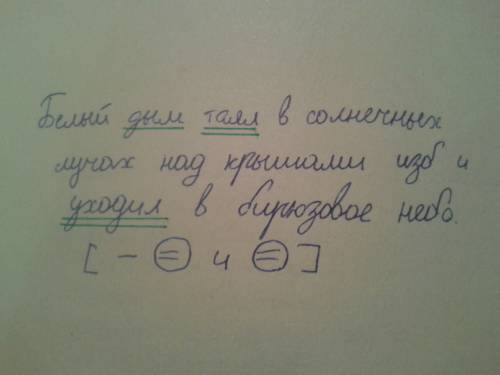 Белый дым таял в солнечных
лучах над крышами изб и
уходил в бирюзовое небо.
[ – = и = ]